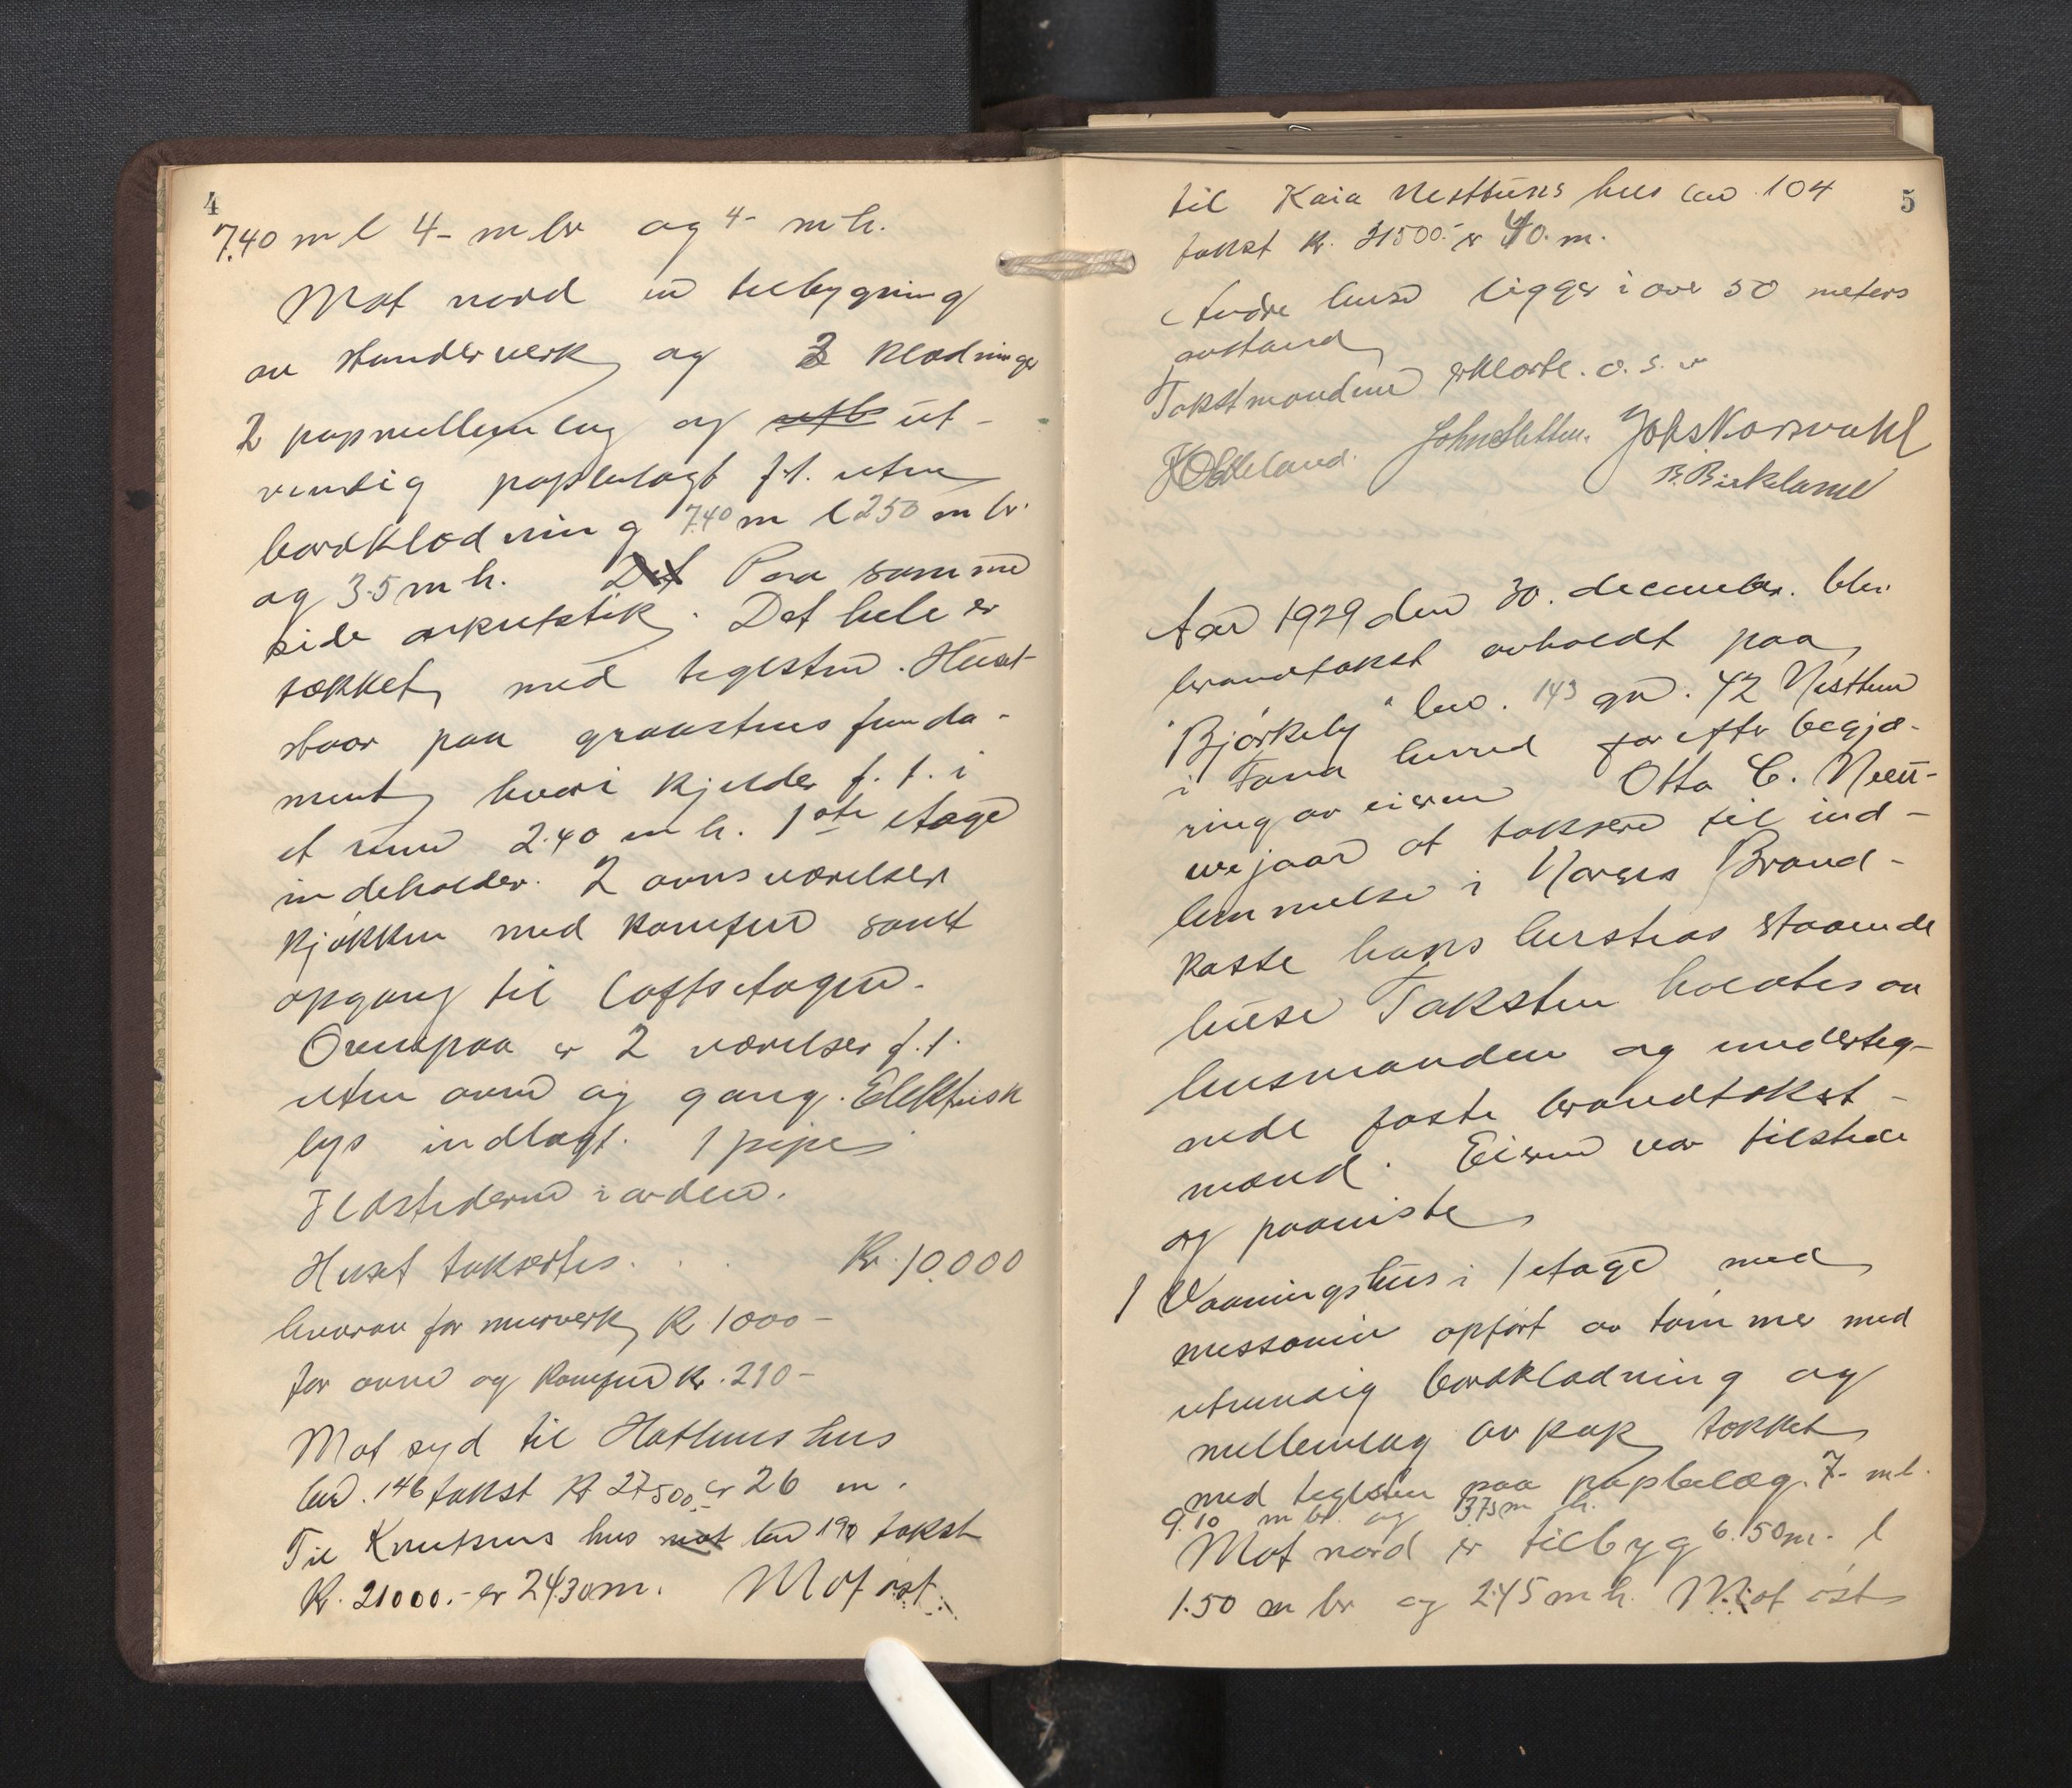 4
7.40 m l 4- m br og 4- m h.
Mot nord en tilbygning
av stenderverk og 2 klædninger
2 papmellemlag og utb ut-
vendig papbelagt f.t. uten
bordklædning 7.40 m l 2.50 m br.
og 3.5 m h. Det Paa samme
side arkutstik. Det hele er
tækket med teglsten. Huset
staar paa graastensfunda-
ment hvori kjelder f.t. i
et rum 2.40 m h. 1ste etage
indeholder. 2 ovnsværelser
kjøkken med komfur samt
opgang til loftsetagen.
Ovenpaa er 2 værelser f.t.
uten ovn og gang. Elektrisk
lys indlagt. 1 pipe
Ildstederne i orden.
Huset takseres. . . Kr. 10.000
hvorav for murverk Kr 1000-
for ovne og komfur Kr. 210-
Mot syd til Hathuns hus
bno. 146 takst Kr 27500.- er 26 m.
Til Knutsens hus mot bno 190 takst
Kr. 21000.- er 24.30 m. Mot øst
5
til Kaia Nesttuns hus bno. 104
takst Kr. 21500.- er 40. m.
Andre huse ligger i over 50 meters
avstand
Takstmændene erklærte. o. s. v
John Sletten. Johs Norsvahl
B. Birkeland
Aar 1929 den 30. december. blev
brandtakst avholdt paa
"Bjørkely" bno. 143 gno. 42 Nesttun
i Fana herred for efter begjæ-
ring av eieren Otto C. Neu-
wejaar at taksere til ind-
lemmelse i Norges Brand-
kasse hans hersteds staaende
huse Taksten holdtes av
lensmanden og underteg-
nede faste brandtakst-
mænd. Eieren var tilstede
og paaviste
1 Vaaningshus i 1 etage med
messanin opført av tømmer med
utvendig bordklædning og
mellemlag av pap tækket
med teglsten paa papbelæg. 7- m l.
9.10 m br. og 3.75 m h.
Mot nord er tilbyg 6.50 m. l
1.50 m br og 2.45 m h. Mot øst